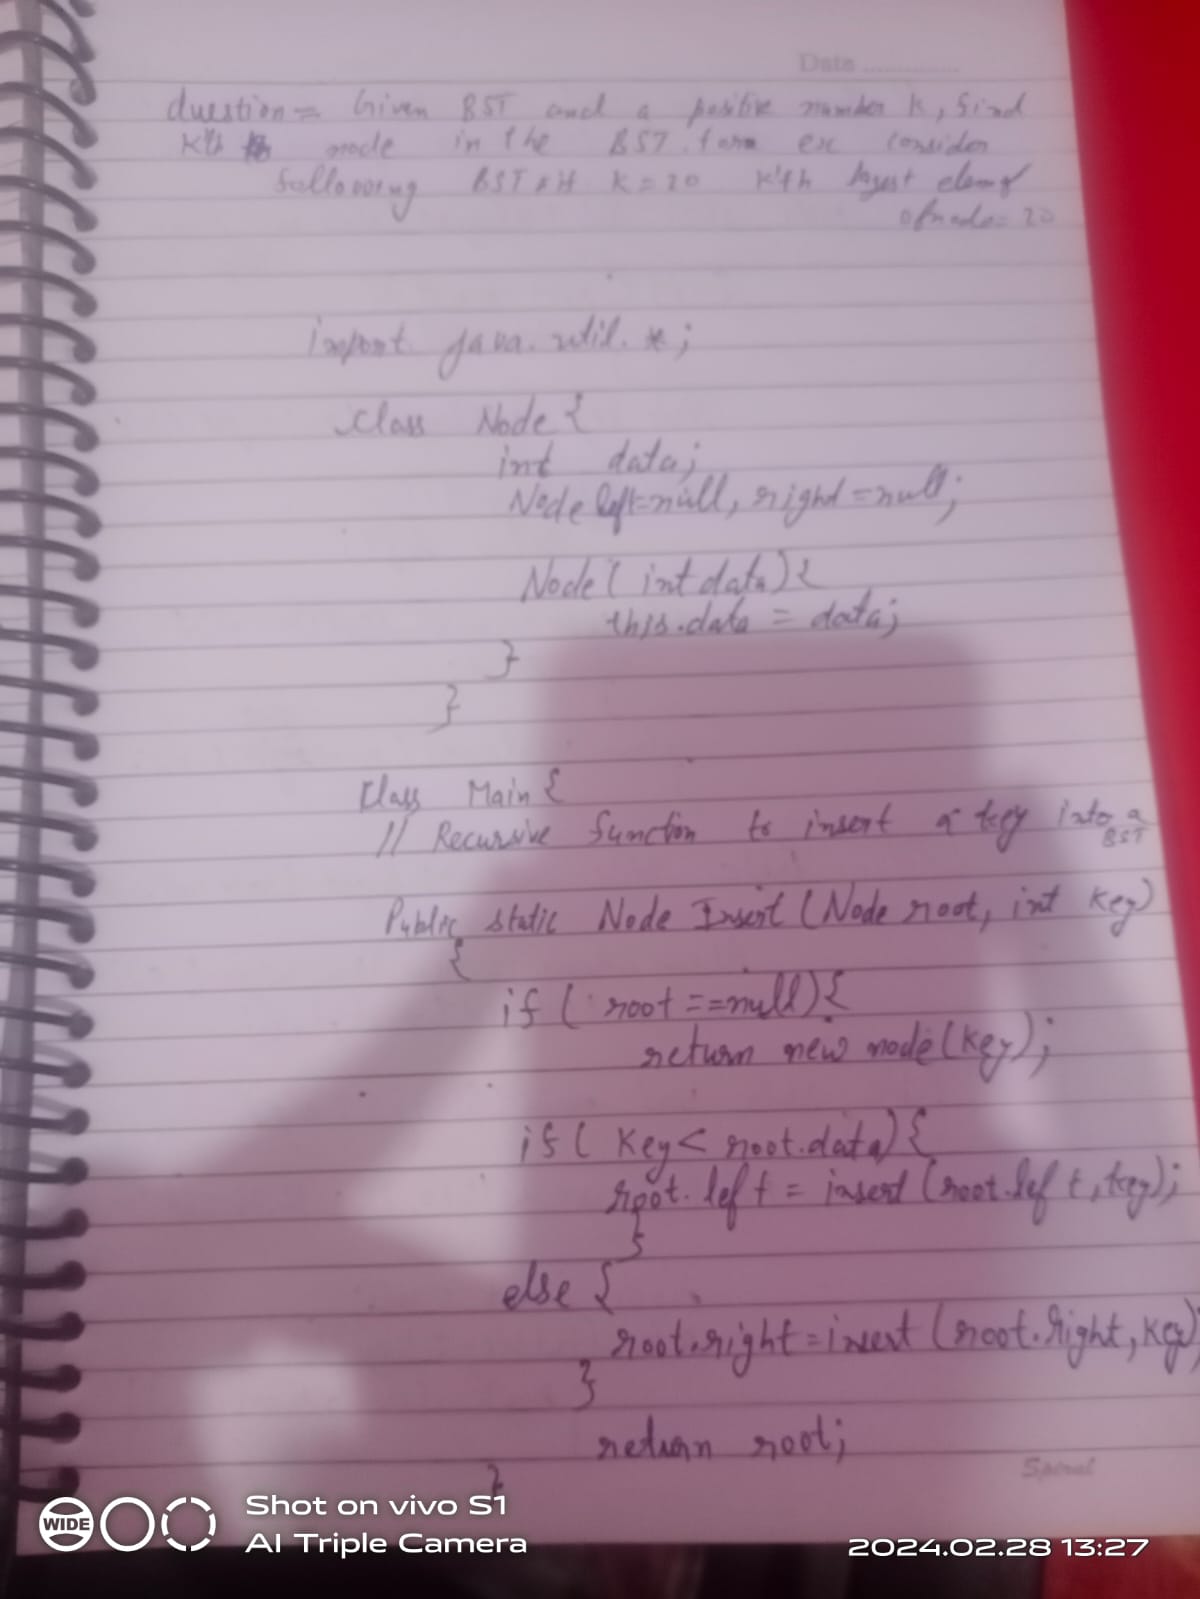 Date
Question = Given BST and a positive number k, find
K'th node in the BST. form ex consider
following BST if K = 20 K'th
of node = 20
import java.util.*;
Class Node {
int data;
Node left=null, right=null;
Node (int data) {
this.data = data;
}
}
Class Main {
// Recursive function to insert a key into a
BST
Public static Node Insert (Node root, int Key)
{
if ( root ==null) {
return new node (Key);
if ( Key < root.data) {
root.left = insert (root.left, key);
}
else {
root.right = insert (root.right, Key)
}
return root;
}
Spiral
WIDE
Shot on vivo S1
AI Triple Camera
2024.02.28 13:27